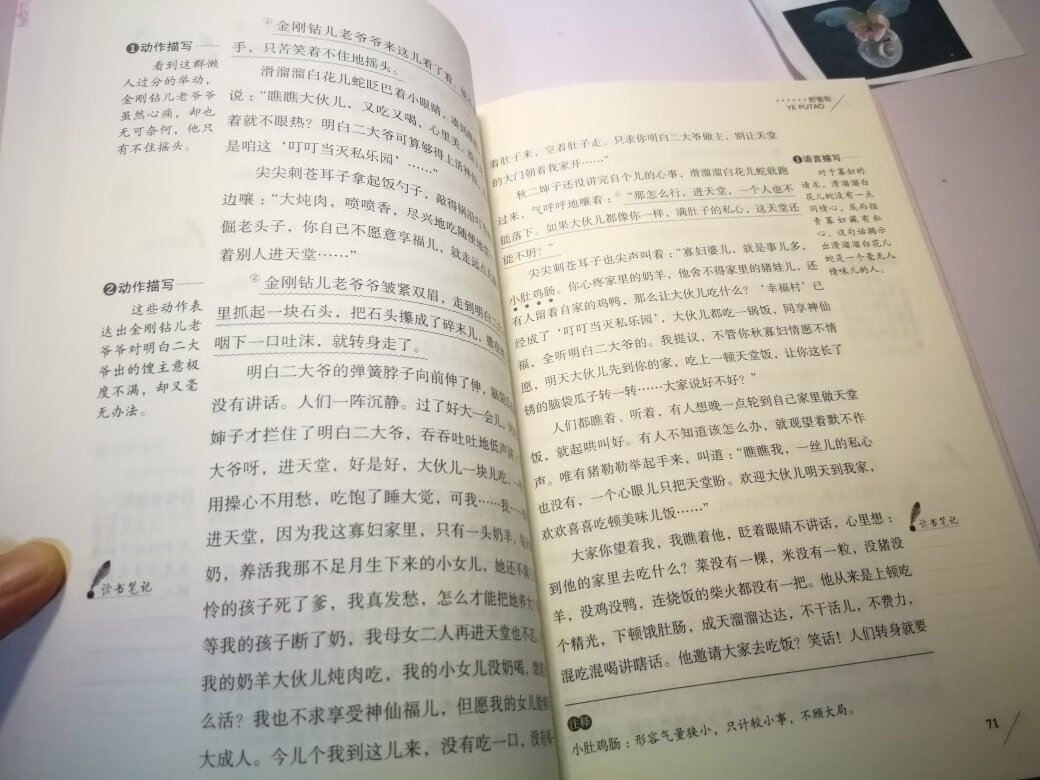 ①金刚钻儿老爷爷来这儿看了看
手，只苦笑着不住地摇头。
滑溜溜白花儿蛇眨巴着小眼睛、凑到
说：“瞧瞧大伙儿，又吃又喝，心里美、
着就不眼热？明白二大爷可算够得上活神仙
是咱这‘叮叮当灭私乐园’……”
尖尖刺苍耳子拿起饭勺子，敲得锅沿叮
边嚷：“大炖肉，喷喷香，尽兴地吃随便地
倔老头子，你自己不愿意享福儿，就走远点儿
着别人进天堂……”
②金刚钻儿老爷爷皱紧双眉，走到明白二大
里抓起一块石头，把石头攥成了碎末儿，撒在
咽下一口吐沫，就转身走了。
明白二大爷的弹簧脖子向前伸了伸，脑袋
没有讲话。人们一阵沉静。过了好大一会儿，
婶子才拦住了明白二大爷，吞吞吐吐地低声讲
大爷呀，进天堂，好是好，大伙儿一块儿吃，
用操心不用愁，吃饱了睡大觉，可我……我……
进天堂，因为我这寡妇家里，只有一头奶羊，
奶，养活我那不足月生下来的小女儿，她还不满
怜的孩子死了爹，我真发愁，怎么才能把她养大
等我的孩子断了奶，我母女二人再进天堂也不迟
我的奶羊大伙儿炖肉吃，我的小女儿没奶喝，
么活？我也不求享受神仙福儿，但愿我的女儿能
大成人。今儿个我到这儿来，没有吃一口，没有
❶动作描写
看到这群懒
人过分的举动，
金刚钻儿老爷爷
虽然心痛，却也
无可奈何，他只
有不住摇头。
❷动作描写
这些动作表
达出金刚钻儿老
爷爷对明白二大
爷出的馊主意极
度不满，却又毫
无办法。
读书笔记
野葡萄
YE PUTAO
着肚子来，空着肚子走。只求你明白二大爷做主，别让天堂
的大门朝着我家开……”
秋二婶子还没讲完自个儿的心事，滑溜溜白花儿蛇就跑
过来，气呼呼地嚷着：①“那怎么行，进天堂，一个人也不
能落下。如果大伙儿都像你一样，满肚子的私心，这天堂还
能不坍？”
尖尖刺苍耳子也尖声叫着：“寡妇婆儿，就是事儿多，
小肚鸡肠。你心疼家里的奶羊，他舍不得家里的猪娃儿，还
有人留着自家的鸡鸭，那么让大伙儿吃什么？‘幸福村’已
经成了‘叮叮当灭私乐园’，大伙儿都吃一锅饭，同享神仙
福，全听明白二大爷的。我提议，不管你秋寡妇情愿不情
愿，明天大伙儿先到你的家，吃上一顿天堂饭，让你这长了
锈的脑袋瓜子转一转……大家说好不好？”
人们都瞧着、听着，有人想晚一点轮到自己家里做天堂
饭，就起哄叫好。有人不知道该怎么办，就观望着默不作
声。唯有猪勒勒举起手来，叫道：“瞧瞧我，一丝儿的私心
也没有，一个心眼儿只把天堂盼。欢迎大伙儿明天到我家，
欢欢喜喜吃顿美味儿饭……”
大家你望着我，我瞧着他，眨着眼睛不讲话，心里想：
到他的家里去吃什么？菜没有一棵，米没有一粒，没猪没
羊，没鸡没鸭，连烧饭的柴火都没有一把。他从来是上顿吃
个精光，下顿饿肚肠，成天溜溜达达，不干活儿，不费力，
混吃混喝讲瞎话。他邀请大家去吃饭？笑话！人们转身就要
❶语言描写
对于寡妇的
请求，滑溜溜白
花儿蛇没有一点
同情心，反而指
责寡妇藏有私
心。这句话揭示
出滑溜溜白花儿
蛇是一个毫无人
情味儿的人。
读书笔记
注释
小肚鸡肠：形容气量狭小，只计较小事，不顾大局。
71